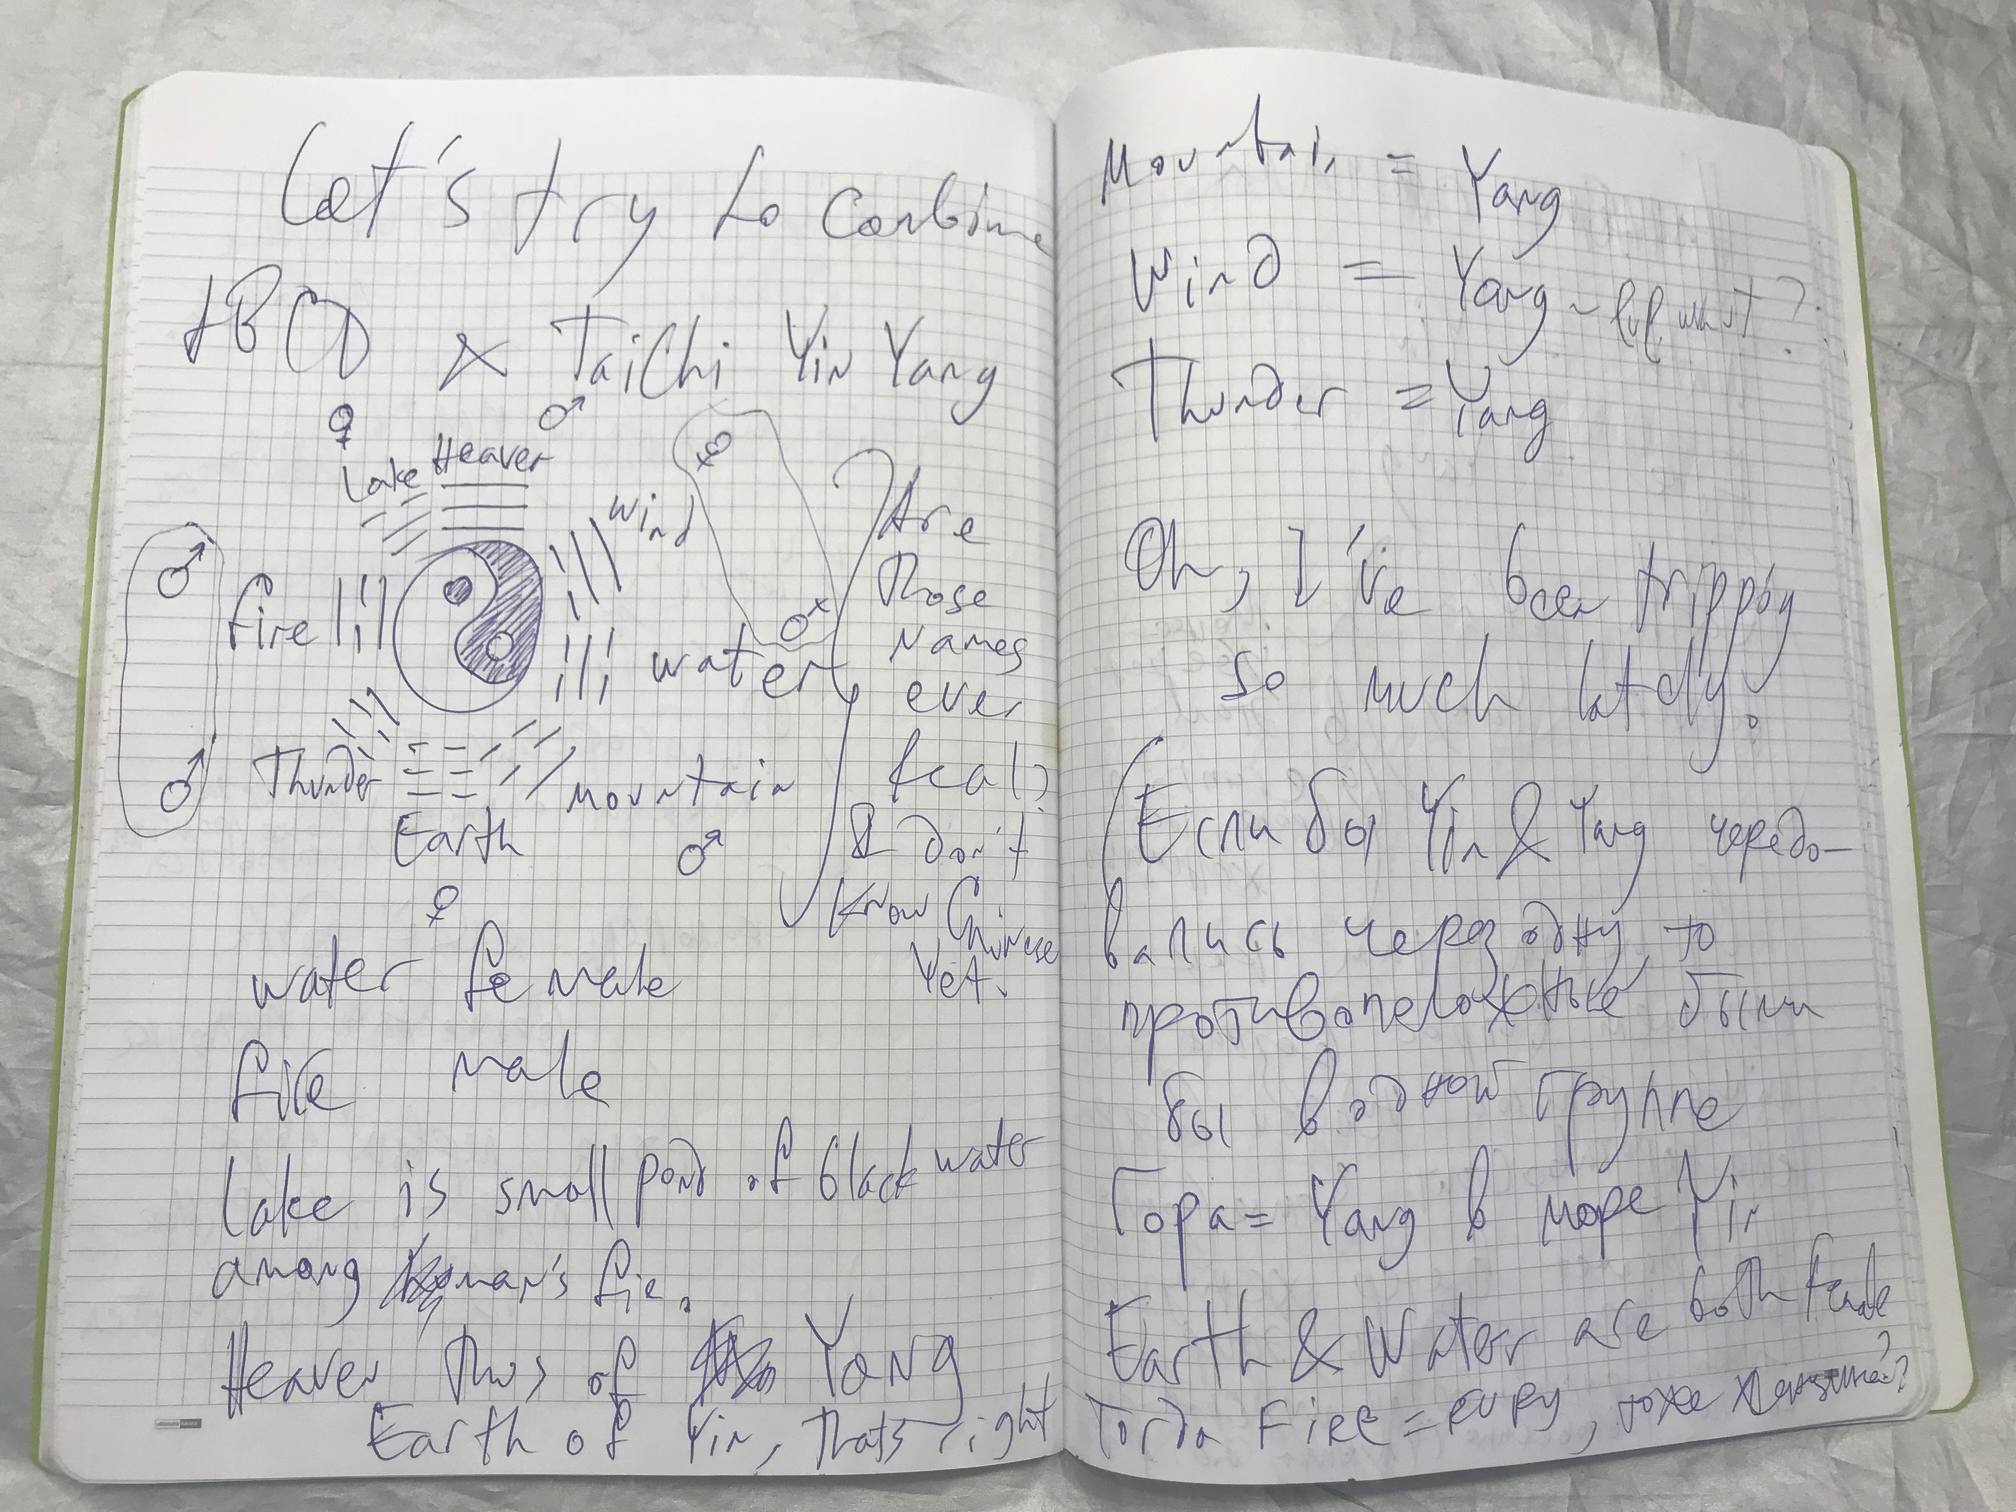 Let's try to combine
ABCD & TaiChi Yin Yang
♀ ♂
Lake Heaven
Wind
♂ fire
water ♂
♂ Thunder
Mountain
Earth
♂
♀
Are
those
names
ever
real?
I don't
know Chinese
yet.
water female
fire male
Lake is small pond of black water
among man's fire.
Heaven thus of Yang
Earth of Yin, thats right
Mountain = Yang
Wind = Yang ~ what?
Thunder = Yang
Oh, I've been tripping
so much lately.
(Если бы Yin & Yang чередо-
вались через одну, то
противоположные были
бы в одной группе
Гора = Yang в море Yin
Earth & Water are both female
?
Тогда Fire = , тоже женщина?